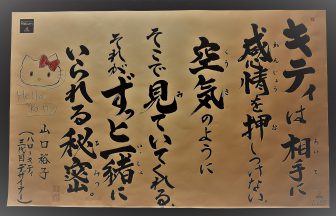 キティは相手に
感情を押しつけない。
空気のように
そこで見ていてくれる。
それがずっと一緒に
いられる秘密。
山口裕子
(ハローキティ
三代目デザイナー)
Hello
Kitty